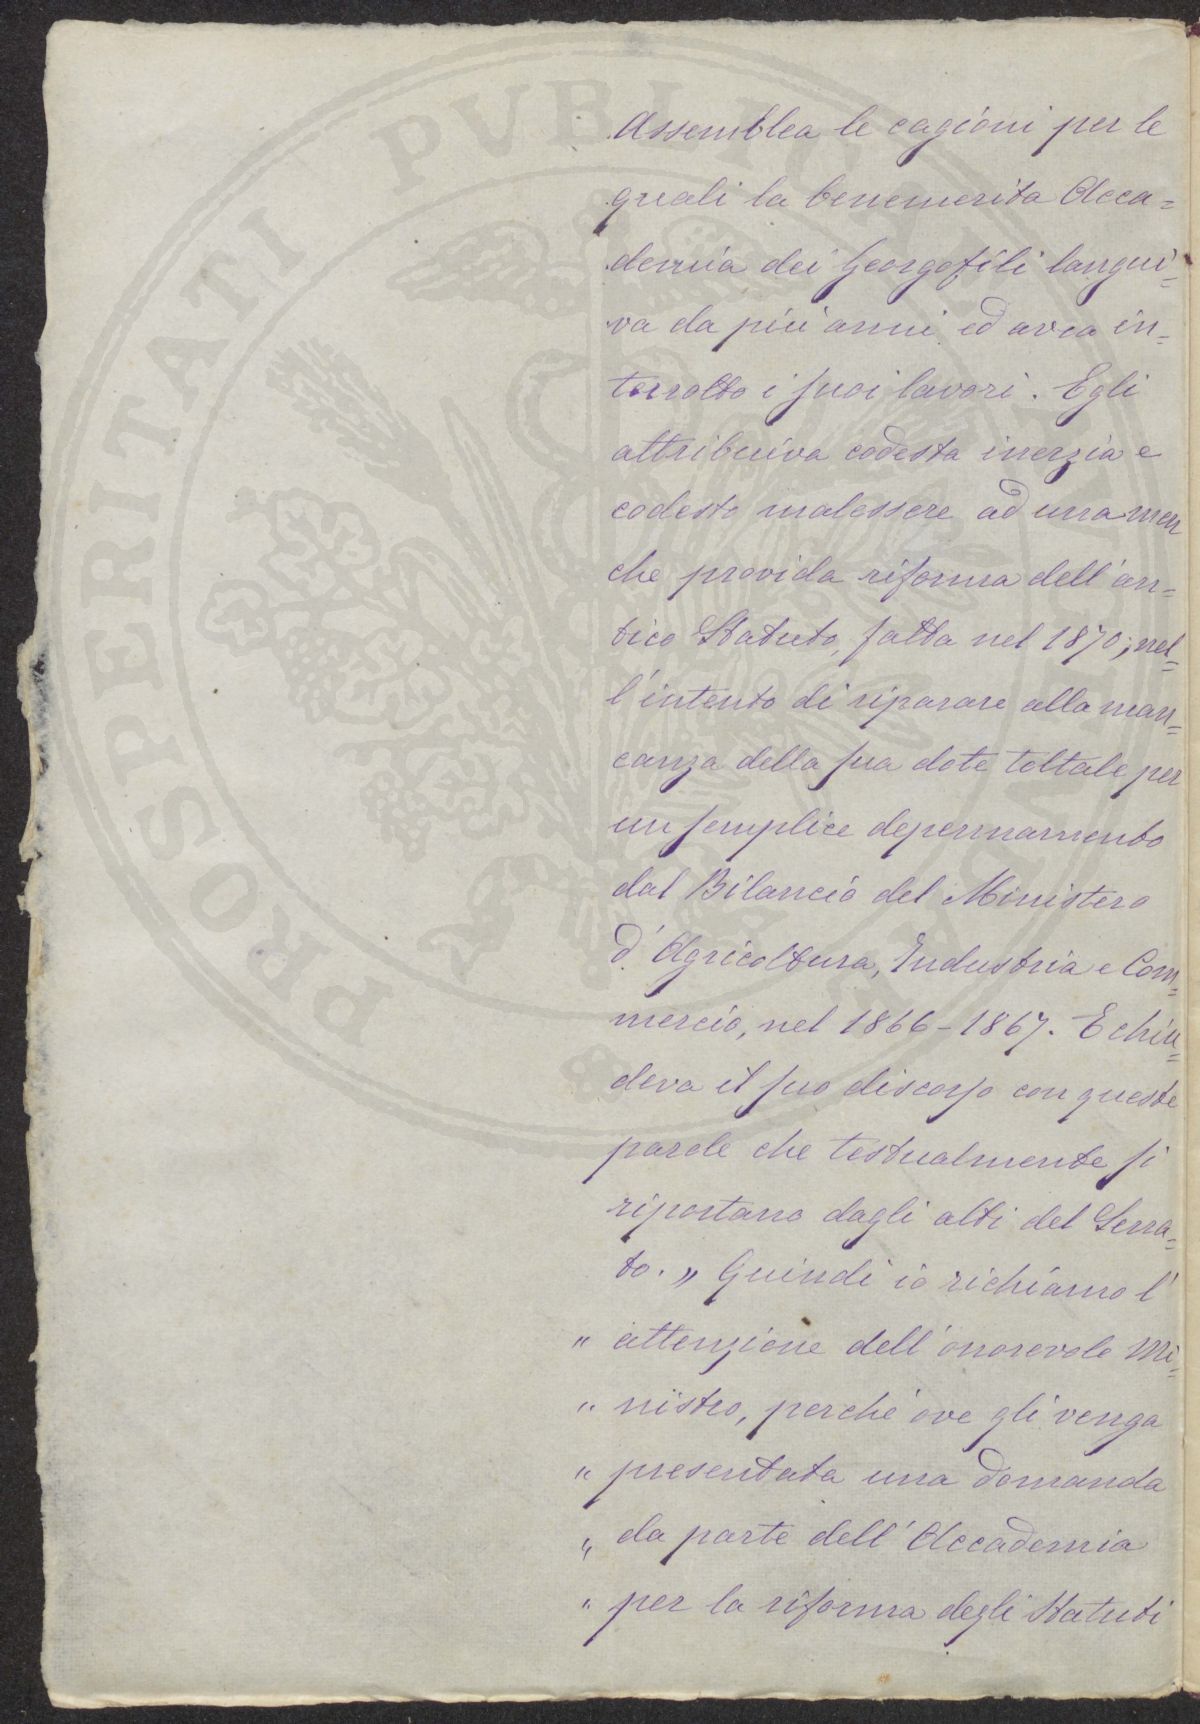 Assemblea le cagioni per le
quali la benemerita Acca=
demia dei Georgofili langui=
va da più anni ed avea in=
terrotto i suoi lavori. Egli
attribuiva codesta inerzia e
codesto malessere ad una men
che provida riforma dell'an=
tico Statuto, fatta nel 1870; nel=
l'intento di riparare alla man=
canza della sua dote toltale per
un semplice depennamento
dal Bilancio del Ministero
d'Agricoltura, Industria e Com=
mercio, nel 1866-1867. E chiu=
deva il suo discorso con queste
parole che testualmente si
riportano dagli atti del Sena=
to. „ Quindi io richiamo l'
" attenzione dell'onorevole Mi=
" nistro, perché ove gli venga
" presentata una domanda
" da parte dell'Accademia
" per la riforma degli Statuti
PROSPERITATI PVBLICAE